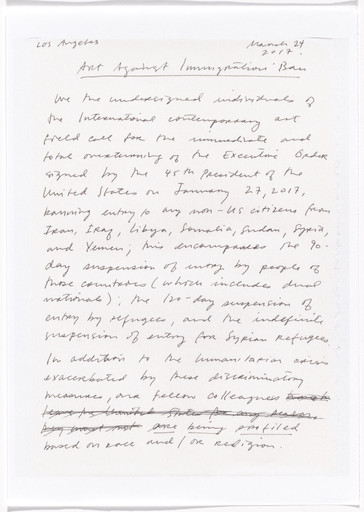 Los Angeles
March 24
2017.
Art Against Immigration Ban
We the undersigned individuals of
the International contemporary art
field call for the immediate and
total overturning of the Executive Order
signed by the 45th President of the
United States on January 27, 2017,
banning entry to any non-US citizens from
Iran, Iraq, Libya, Somalia, Sudan, Syria,
and Yemen; this encompasses the 90-
day suspension of entry by people of
those countries (which includes dual
nationals); the 120-day suspension of
entry by refugees, and the indefinite
suspension of entry for Syrian Refugees
In addition to the humanitarian crisis
exacerbated by these discriminatory
measures, our fellow colleagues
leave the United States for any reason,
they must not are being profiled
based on race and/or religion.